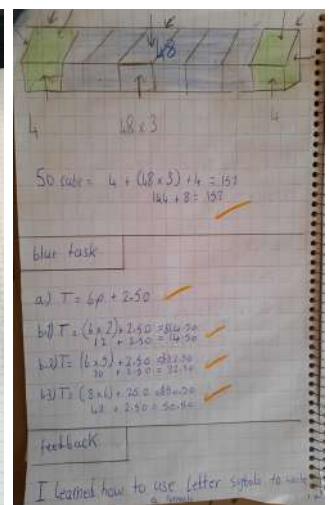 48
4 48 x 3 4
50 cube = 4 + (48 x 3) + 4 = 152
144 + 8 = 152
blue task
a) T = 6p + 2.50
b.1) T = (6 x 2) + 2.50 = £14.50
12 + 2.50 = 14.50
b.2) T = (6 x 5) + 2.50 = £32.50
30 + 2.50 = 32.50
b.3) T = (8 x 6) + 25.0 = £50.50
48 + 2.50 = 50.50
feedback
I learned how to use letter symbols to write
a formula